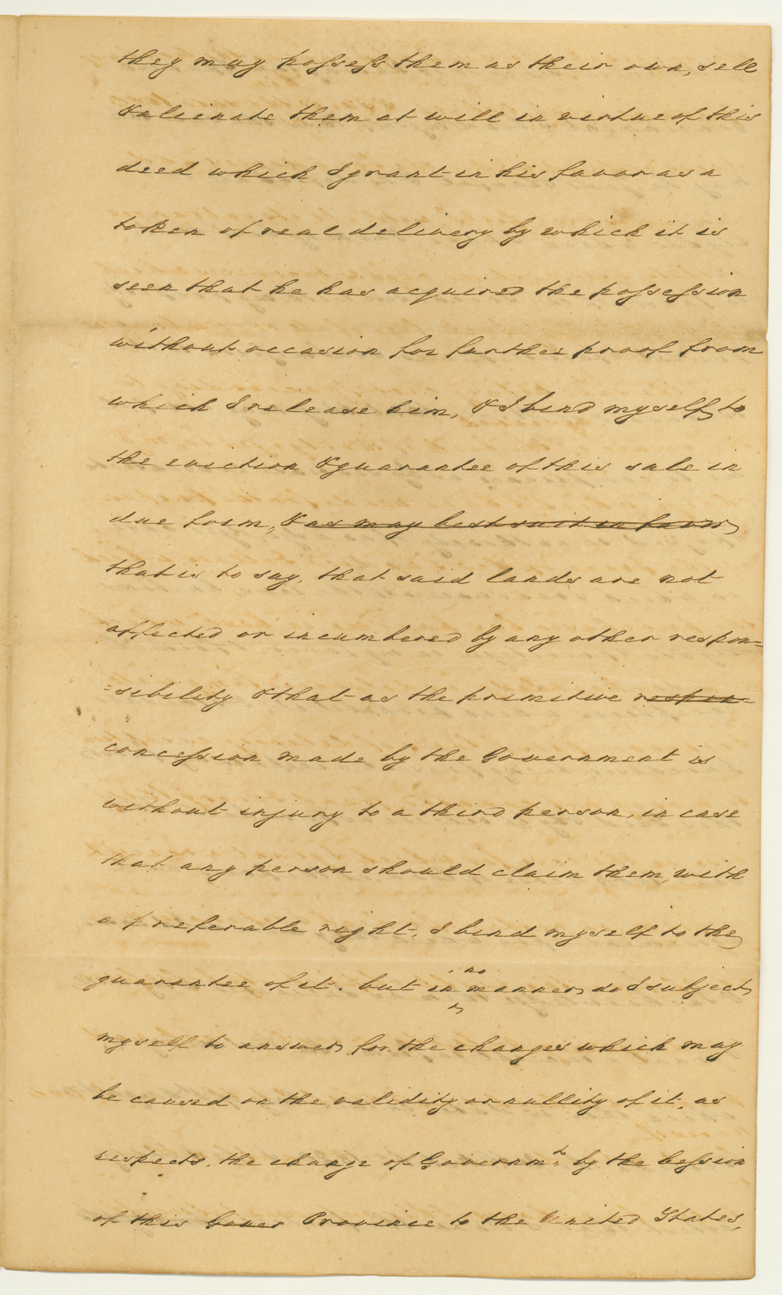 they may possess them as their own, sell
& alienate them at will in virtue of this
deed which I grant in his favor as a
token of real delivery by which it is
seen that he has acquired the possession
without occasion for further proof from
which I release him, & I bind myself to
the eviction & guarantee of this sale in
due form, & as may best suit in favor
that is to say, that said lands are not
affected or incumbered by any other respon=
=sibility & that as the primitive respon=
concession made by the Government is
without injury to a third person, in case
that any person should claim them with
a preferable right, I bind myself to the
guarantee of it. but in no manner do I subject
myself to answer for the charges which may
be caused on the validity or nullity of it, as
respects the change of Governmt. by the Cession
of this Province to the United States,